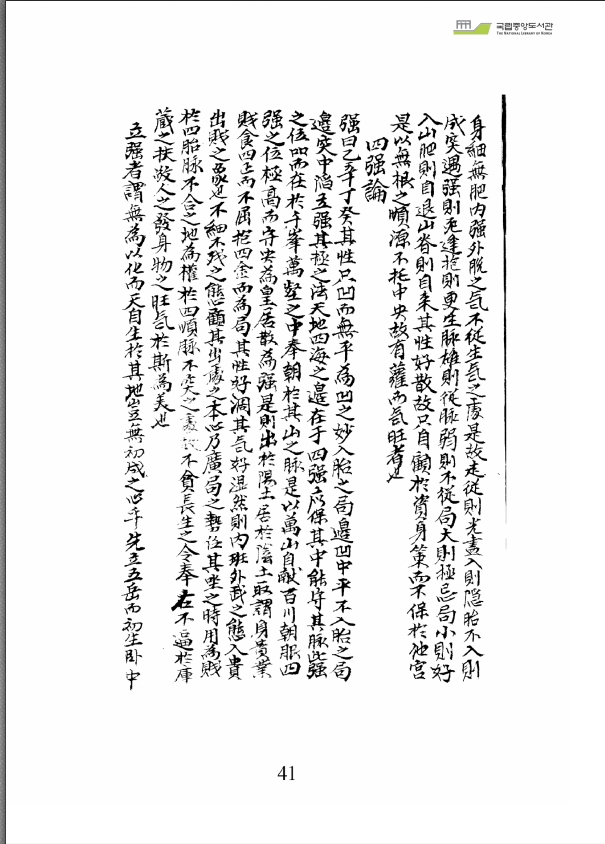 국립중앙도서관
THE NATIONAL LIBRARY OF KOREA
身細無肥內强外脫之气不從生气之處是故走從則光盡入則隱胎不入則
成突遇强則死逢抱則更生脉雄則從脉弱則不從局大則極忌局小則好
入山肥則自退山脊則自来其性好散故只自顧於資身策而不保於他宮
是以無根之順源不托中央故有蘿而气旺者也
四强論
强曰乙辛丁癸其性只凹而無平為凹之妙入胎之局邊凹中平不入胎之局
邊突中滔五强其極之法天地四海之邊在于四强以保其中能守其脉此强
之位品而在於千峯萬壑之中奉朝於其山之脉是以萬山自献百川朝服四
强之位極高而守央為皇居散為强是則出於陽土居於陰土取謂身貴業
賤食四正而不屈抱四金而為局其性好凋其气好湿然則內班外武之態入貴
出賤之象也不細不残之態顧其出處之本心乃廣局之勢任其坐之時用為賤
於四胎脉不合之地為權於四順脉不突之處 不貪長生之令奉右不逼於庫
藏之扶敬人之發身物之旺气於斯為美也
五强者謂無為以化而天自生於其地岂無初成之心乎先立五岳而初生卧中
41